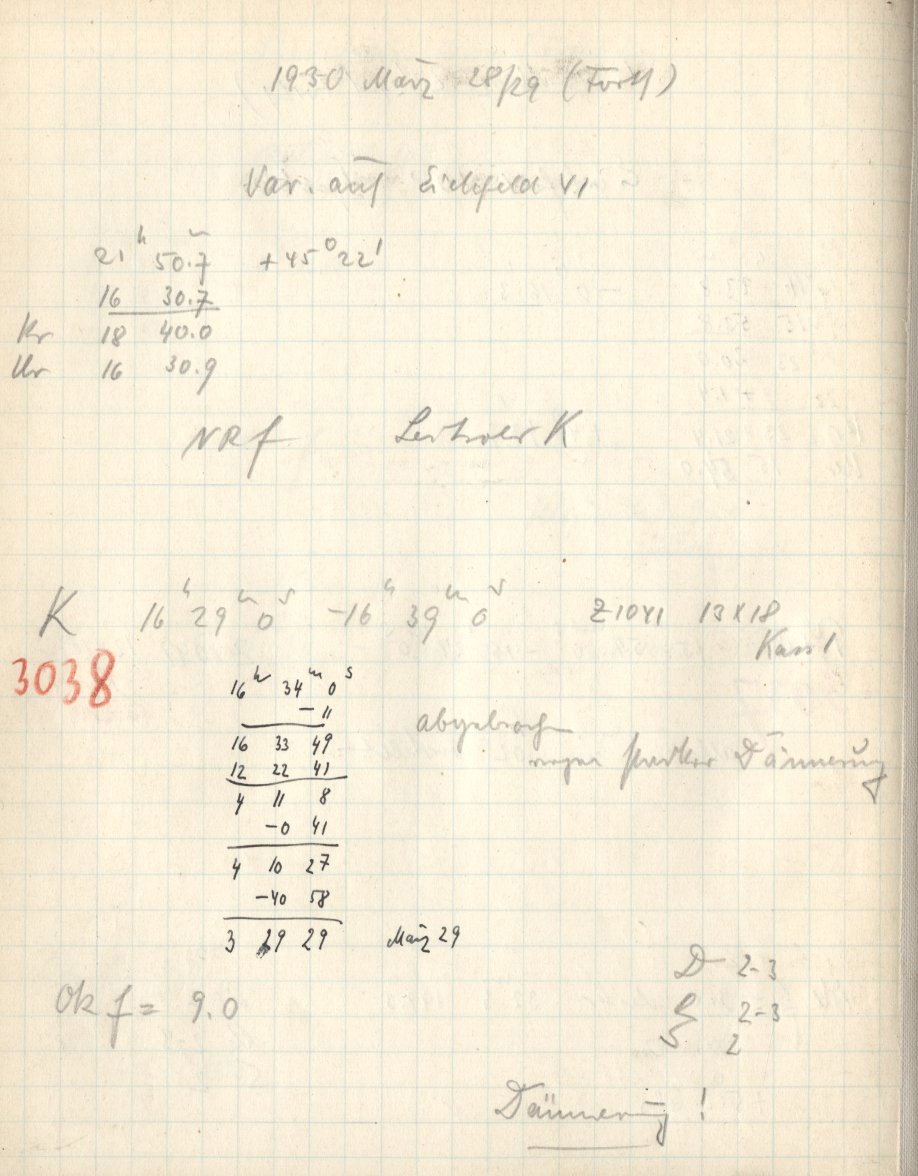 1930 März 28/29 (Forts)
Var. auf Eichfeld VI
21ʰ 50.7ᵐ +45° 22'
16 30.7
Kr 18 40.0
Ur 16 30.9
NRf Leitstern K
K 16ʰ 29ᵐ 0ˢ -16ʰ 39ᵐ 0ˢ Z1041 13x18
Kass 1
3038
16ʰ 34ᵐ 0ˢ
- 11
16 33 49
12 22 41
4 11 8
-0 41
4 10 27
-40 58
3 29 29 März 29
abgebrochen
wegen starker Dämmerung
D 2-3
Ok f = 9.0
2-3
2
Dämmerung !